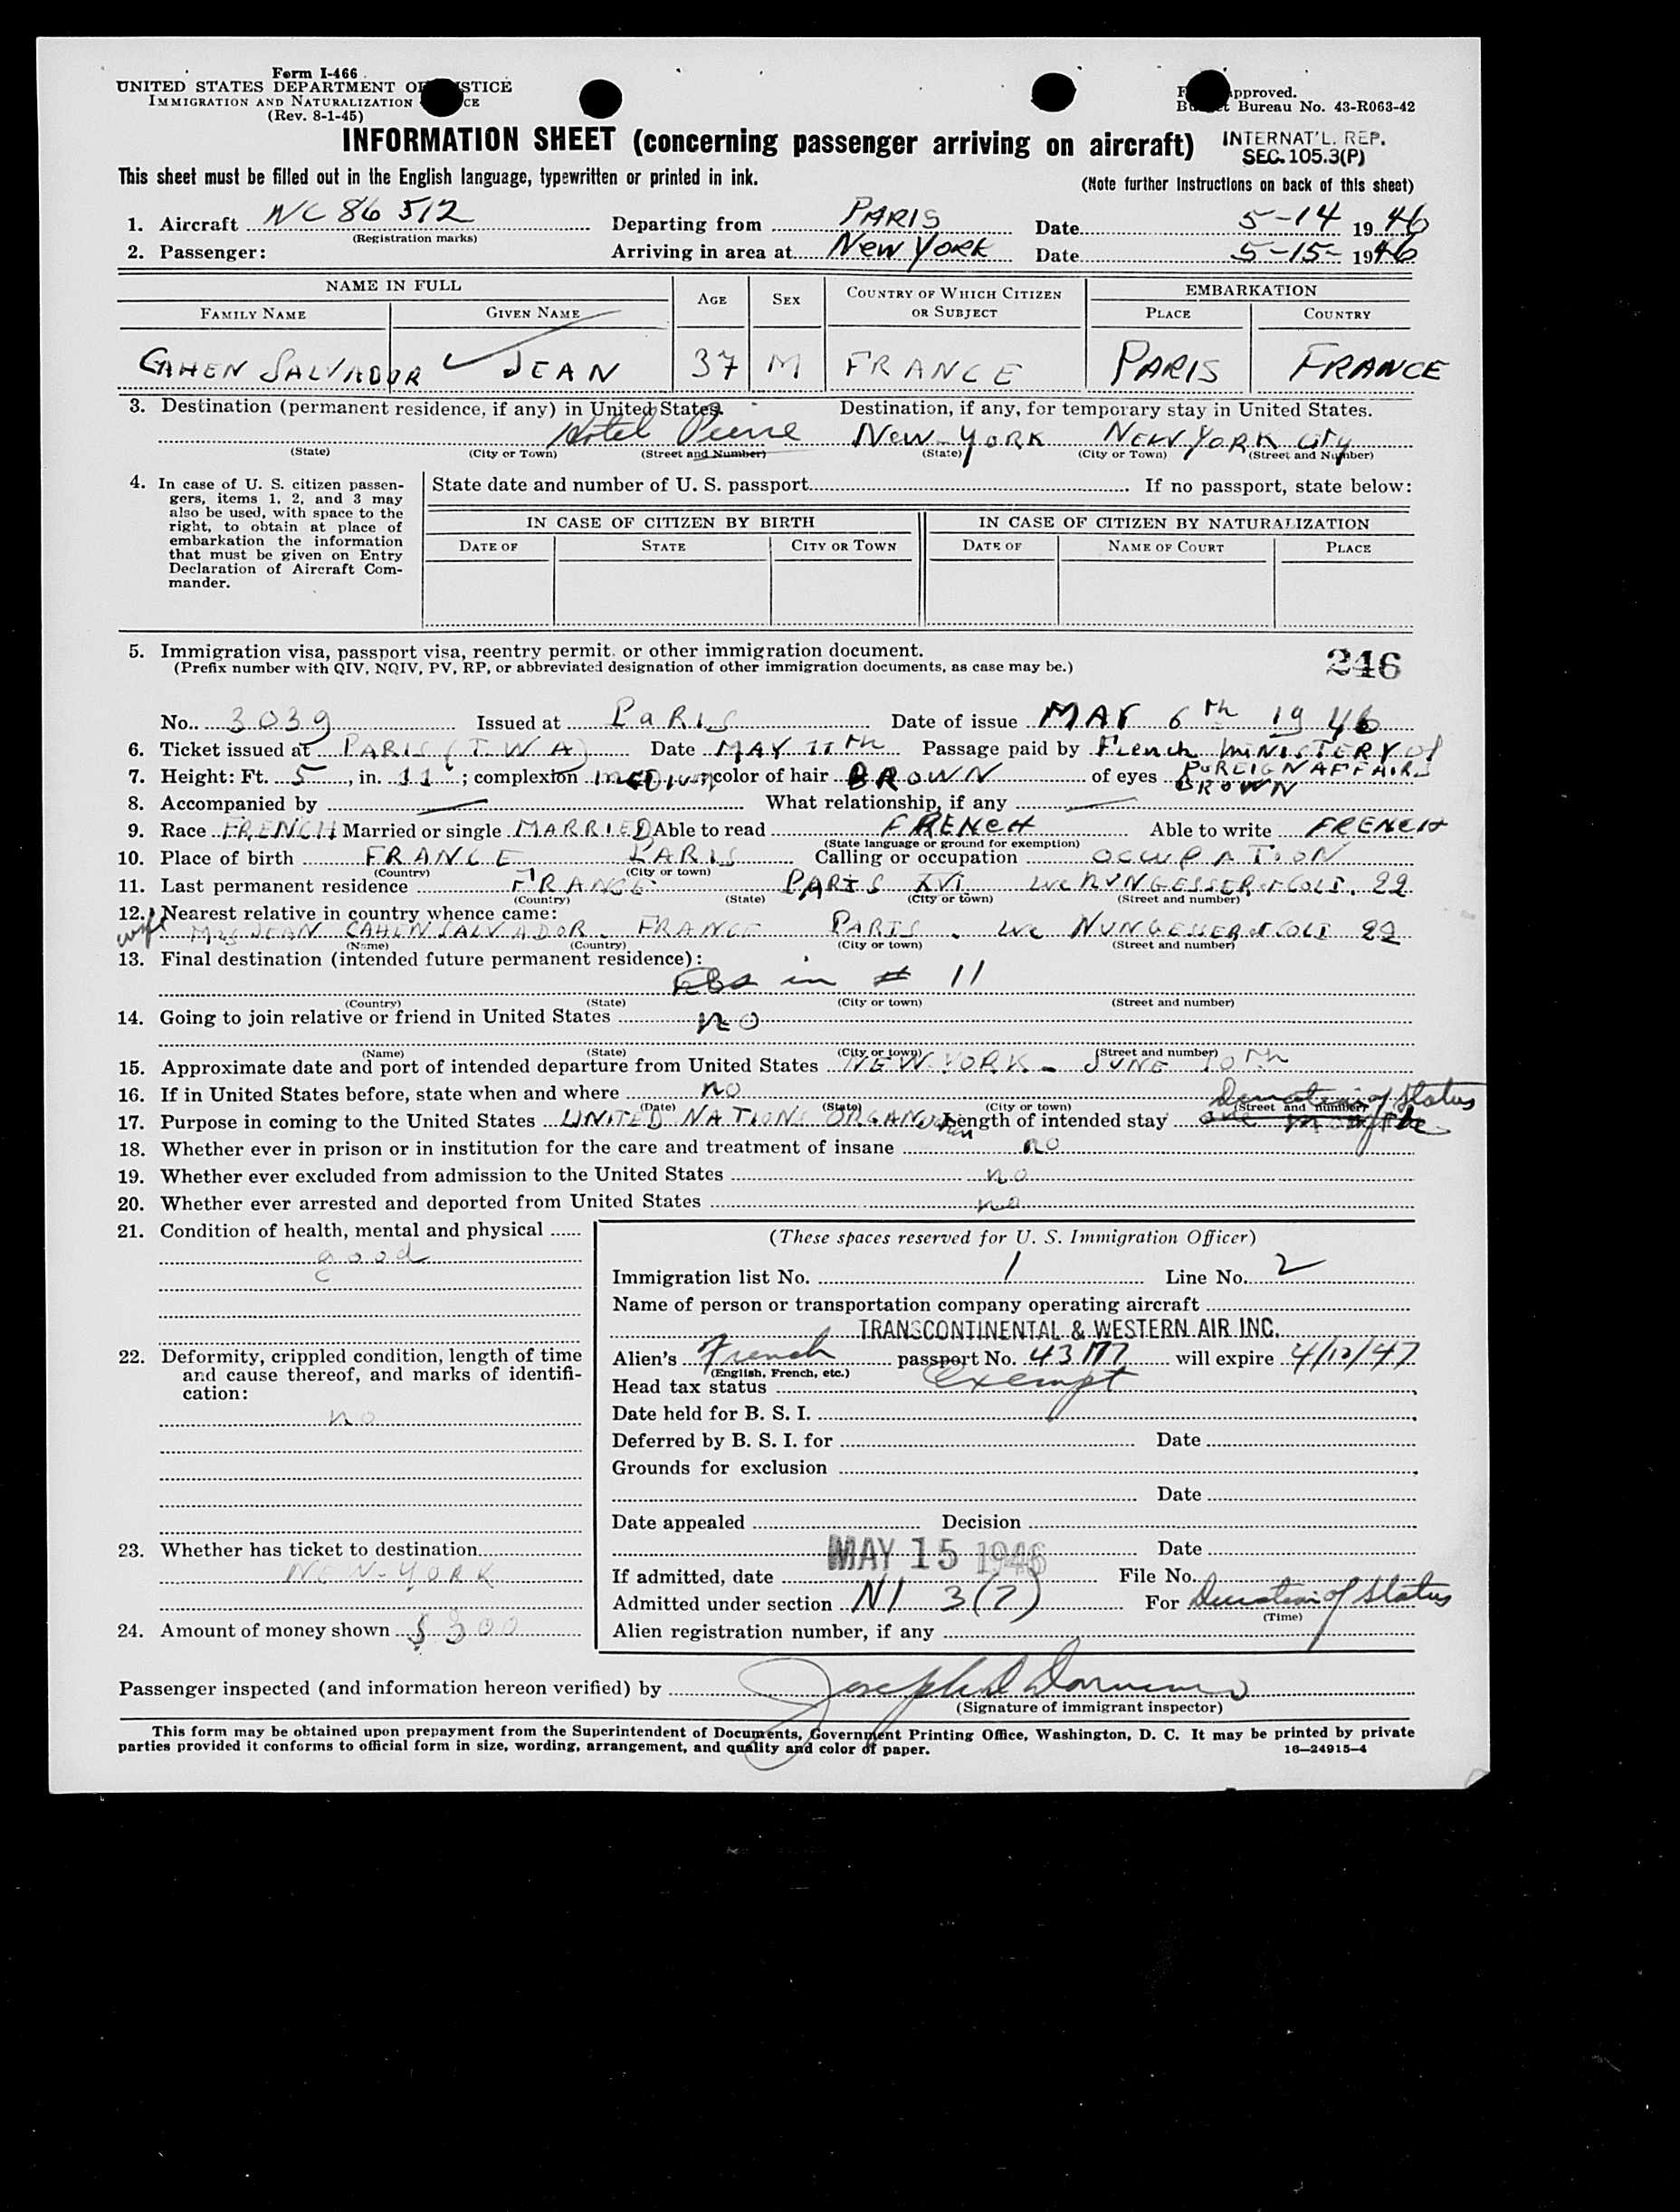 Form I-466
UNITED STATES DEPARTMENT OF JUSTICE
IMMIGRATION AND NATURALIZATION SERVICE
(Rev. 8-1-45)
Form approved.
Budget Bureau No. 43-R063-42
INFORMATION SHEET (concerning passenger arriving on aircraft)
INTERNAT'L. REP.
SEC. 105.3(P)
This sheet must be filled out in the English language, typewritten or printed in ink.
(Note further instructions on back of this sheet)
1. Aircraft NC 86 512 Departing from PARIS Date 5-14 1946
(Registration marks)
2. Passenger: Arriving in area at New York Date 5-15- 1946
NAME IN FULL AGE SEX COUNTRY OF WHICH CITIZEN OR SUBJECT EMBARKATION
FAMILY NAME GIVEN NAME PLACE COUNTRY
CAHEN SALVADOR JEAN 37 M FRANCE PARIS FRANCE
3. Destination (permanent residence, if any) in United States. Destination, if any, for temporary stay in United States.
Hotel Pierre New-York New York City
(State) (City or Town) (Street and Number) (State) (City or Town) (Street and Number)
4. In case of U. S. citizen passengers, items 1, 2, and 3 may also be used, with space to the right, to obtain at place of embarkation the information that must be given on Entry Declaration of Aircraft Commander.
State date and number of U. S. passport If no passport, state below:
IN CASE OF CITIZEN BY BIRTH IN CASE OF CITIZEN BY NATURALIZATION
DATE OF STATE CITY OR TOWN DATE OF NAME OF COURT PLACE
5. Immigration visa, passport visa, reentry permit, or other immigration document.
(Prefix number with QIV, NQIV, PV, RP, or abbreviated designation of other immigration documents, as case may be.)
246
No. 3039 Issued at PaRIS Date of issue MAY 6th 1946
6. Ticket issued at PARIS (TWA) Date MAY 11th Passage paid by French MINISTERY of FOREIGN AFFAIRS
7. Height: Ft. 5, in. 11; complexion MEDIUM; color of hair BROWN of eyes BROWN
8. Accompanied by — What relationship, if any —
9. Race FRENCH Married or single MARRIED Able to read FRENCH Able to write FRENCH
(State language or ground for exemption)
10. Place of birth FRANCE PARIS Calling or occupation OCCUPATION
(Country) (City or town)
11. Last permanent residence FRANCE PARIS XVI NUNGESSER et COLI. 22
(Country) (State) (City or town) (Street and number)
12. Nearest relative in country whence came:
wife Mrs JEAN CAHEN SALVADOR. FRANCE PARIS. NUNGESSER et COLI 22
(Name) (Country) (City or town) (Street and number)
13. Final destination (intended future permanent residence):
in # 11
(Country) (State) (City or town) (Street and number)
14. Going to join relative or friend in United States no
(Name) (State) (City or town) (Street and number)
15. Approximate date and port of intended departure from United States NEW YORK - JUNE 10th
16. If in United States before, state when and where no
(Date) (State) (City or town) (Street and number)
17. Purpose in coming to the United States UNITED NATIONS ORGANIZation Length of intended stay one month Duration of Status
18. Whether ever in prison or in institution for the care and treatment of insane no
19. Whether ever excluded from admission to the United States no
20. Whether ever arrested and deported from United States no
21. Condition of health, mental and physical
good
22. Deformity, crippled condition, length of time and cause thereof, and marks of identification:
no
23. Whether has ticket to destination
NEW-YORK
24. Amount of money shown $ 300
(These spaces reserved for U. S. Immigration Officer)
Immigration list No. 1 Line No. 2
Name of person or transportation company operating aircraft
TRANSCONTINENTAL & WESTERN AIR INC.
Alien's French passport No. 43177 will expire 4/12/47
(English, French, etc.)
Head tax status Exempt
Date held for B. S. I.
Deferred by B. S. I. for Date
Grounds for exclusion
Date
Date appealed Decision
Date
If admitted, date MAY 15 1946 File No.
Admitted under section NI 3(7) For Duration of Status
(Time)
Alien registration number, if any
Passenger inspected (and information hereon verified) by
(Signature of immigrant inspector)
This form may be obtained upon prepayment from the Superintendent of Documents, Government Printing Office, Washington, D. C. It may be printed by private
parties provided it conforms to official form in size, wording, arrangement, and quality and color of paper.
16—24915-4